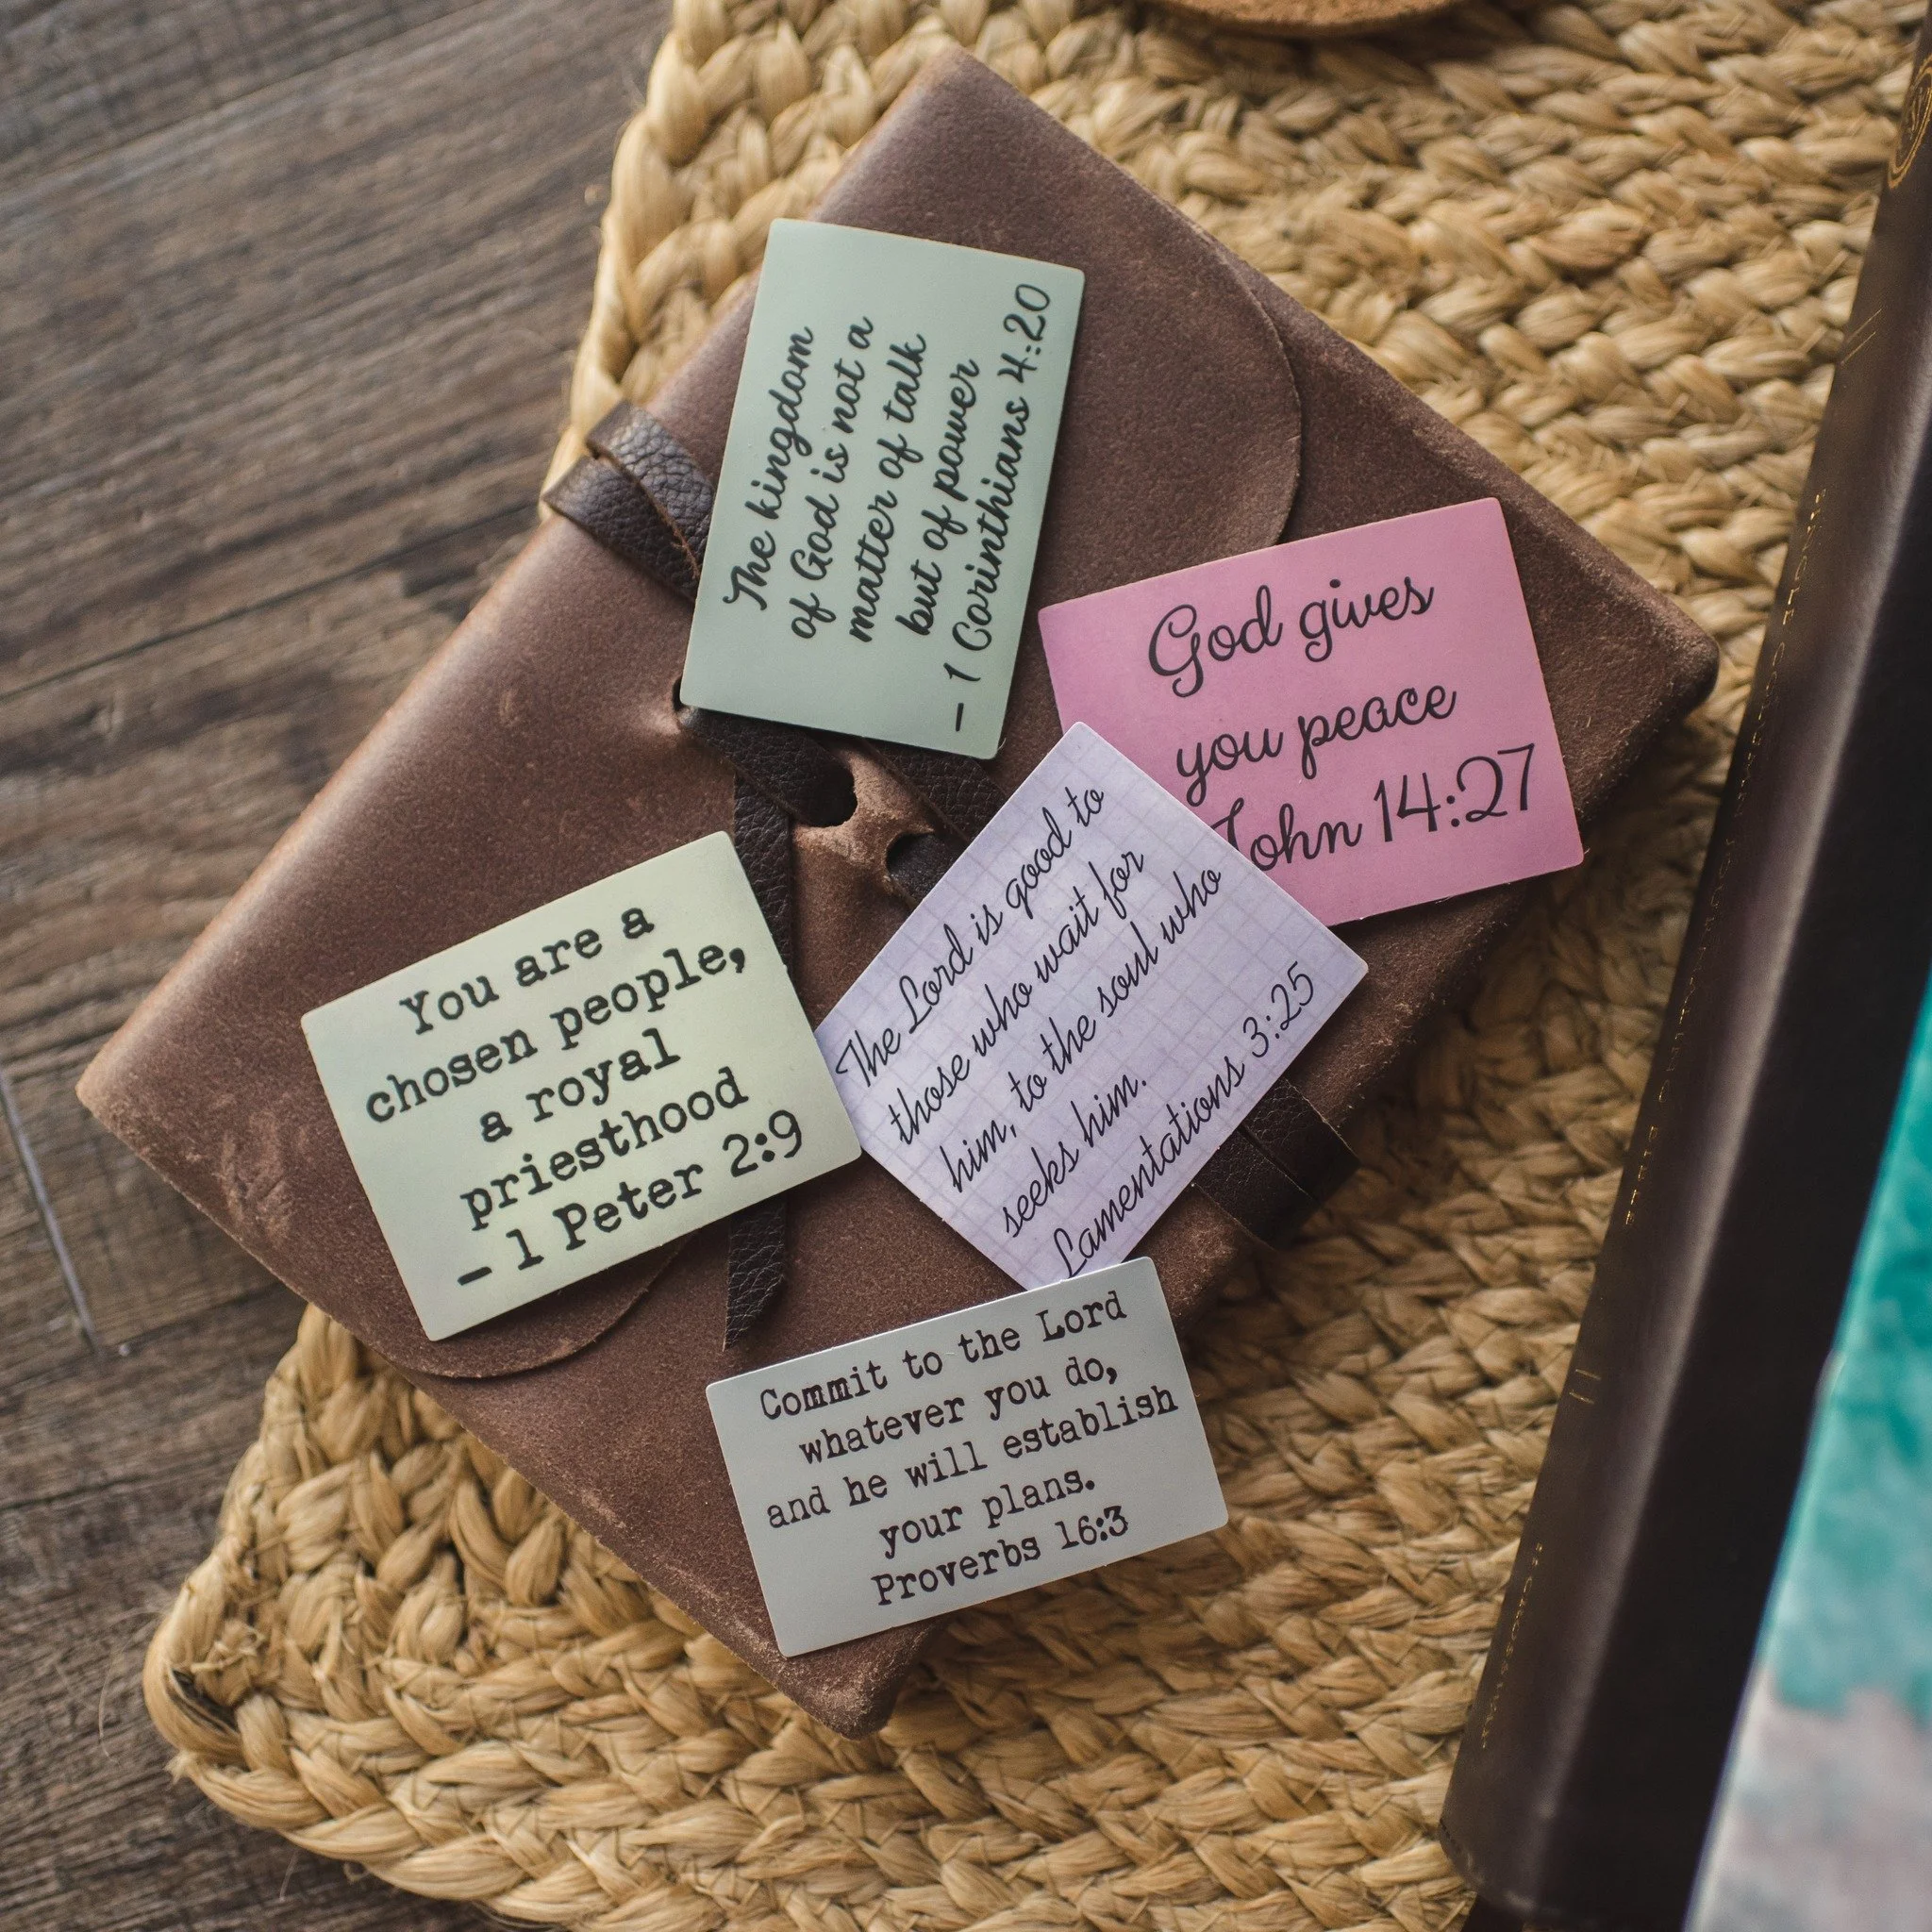 The kingdom
of God is not a
matter of talk
but of power
- 1 Corinthians 4:20
God gives
you peace
John 14:27
The Lord is good to
those who wait for
him, to the soul who
seeks him.
Lamentations 3:25
You are a
chosen people,
a royal
priesthood
- 1 Peter 2:9
Commit to the Lord
whatever you do,
and he will establish
your plans.
Proverbs 16:3